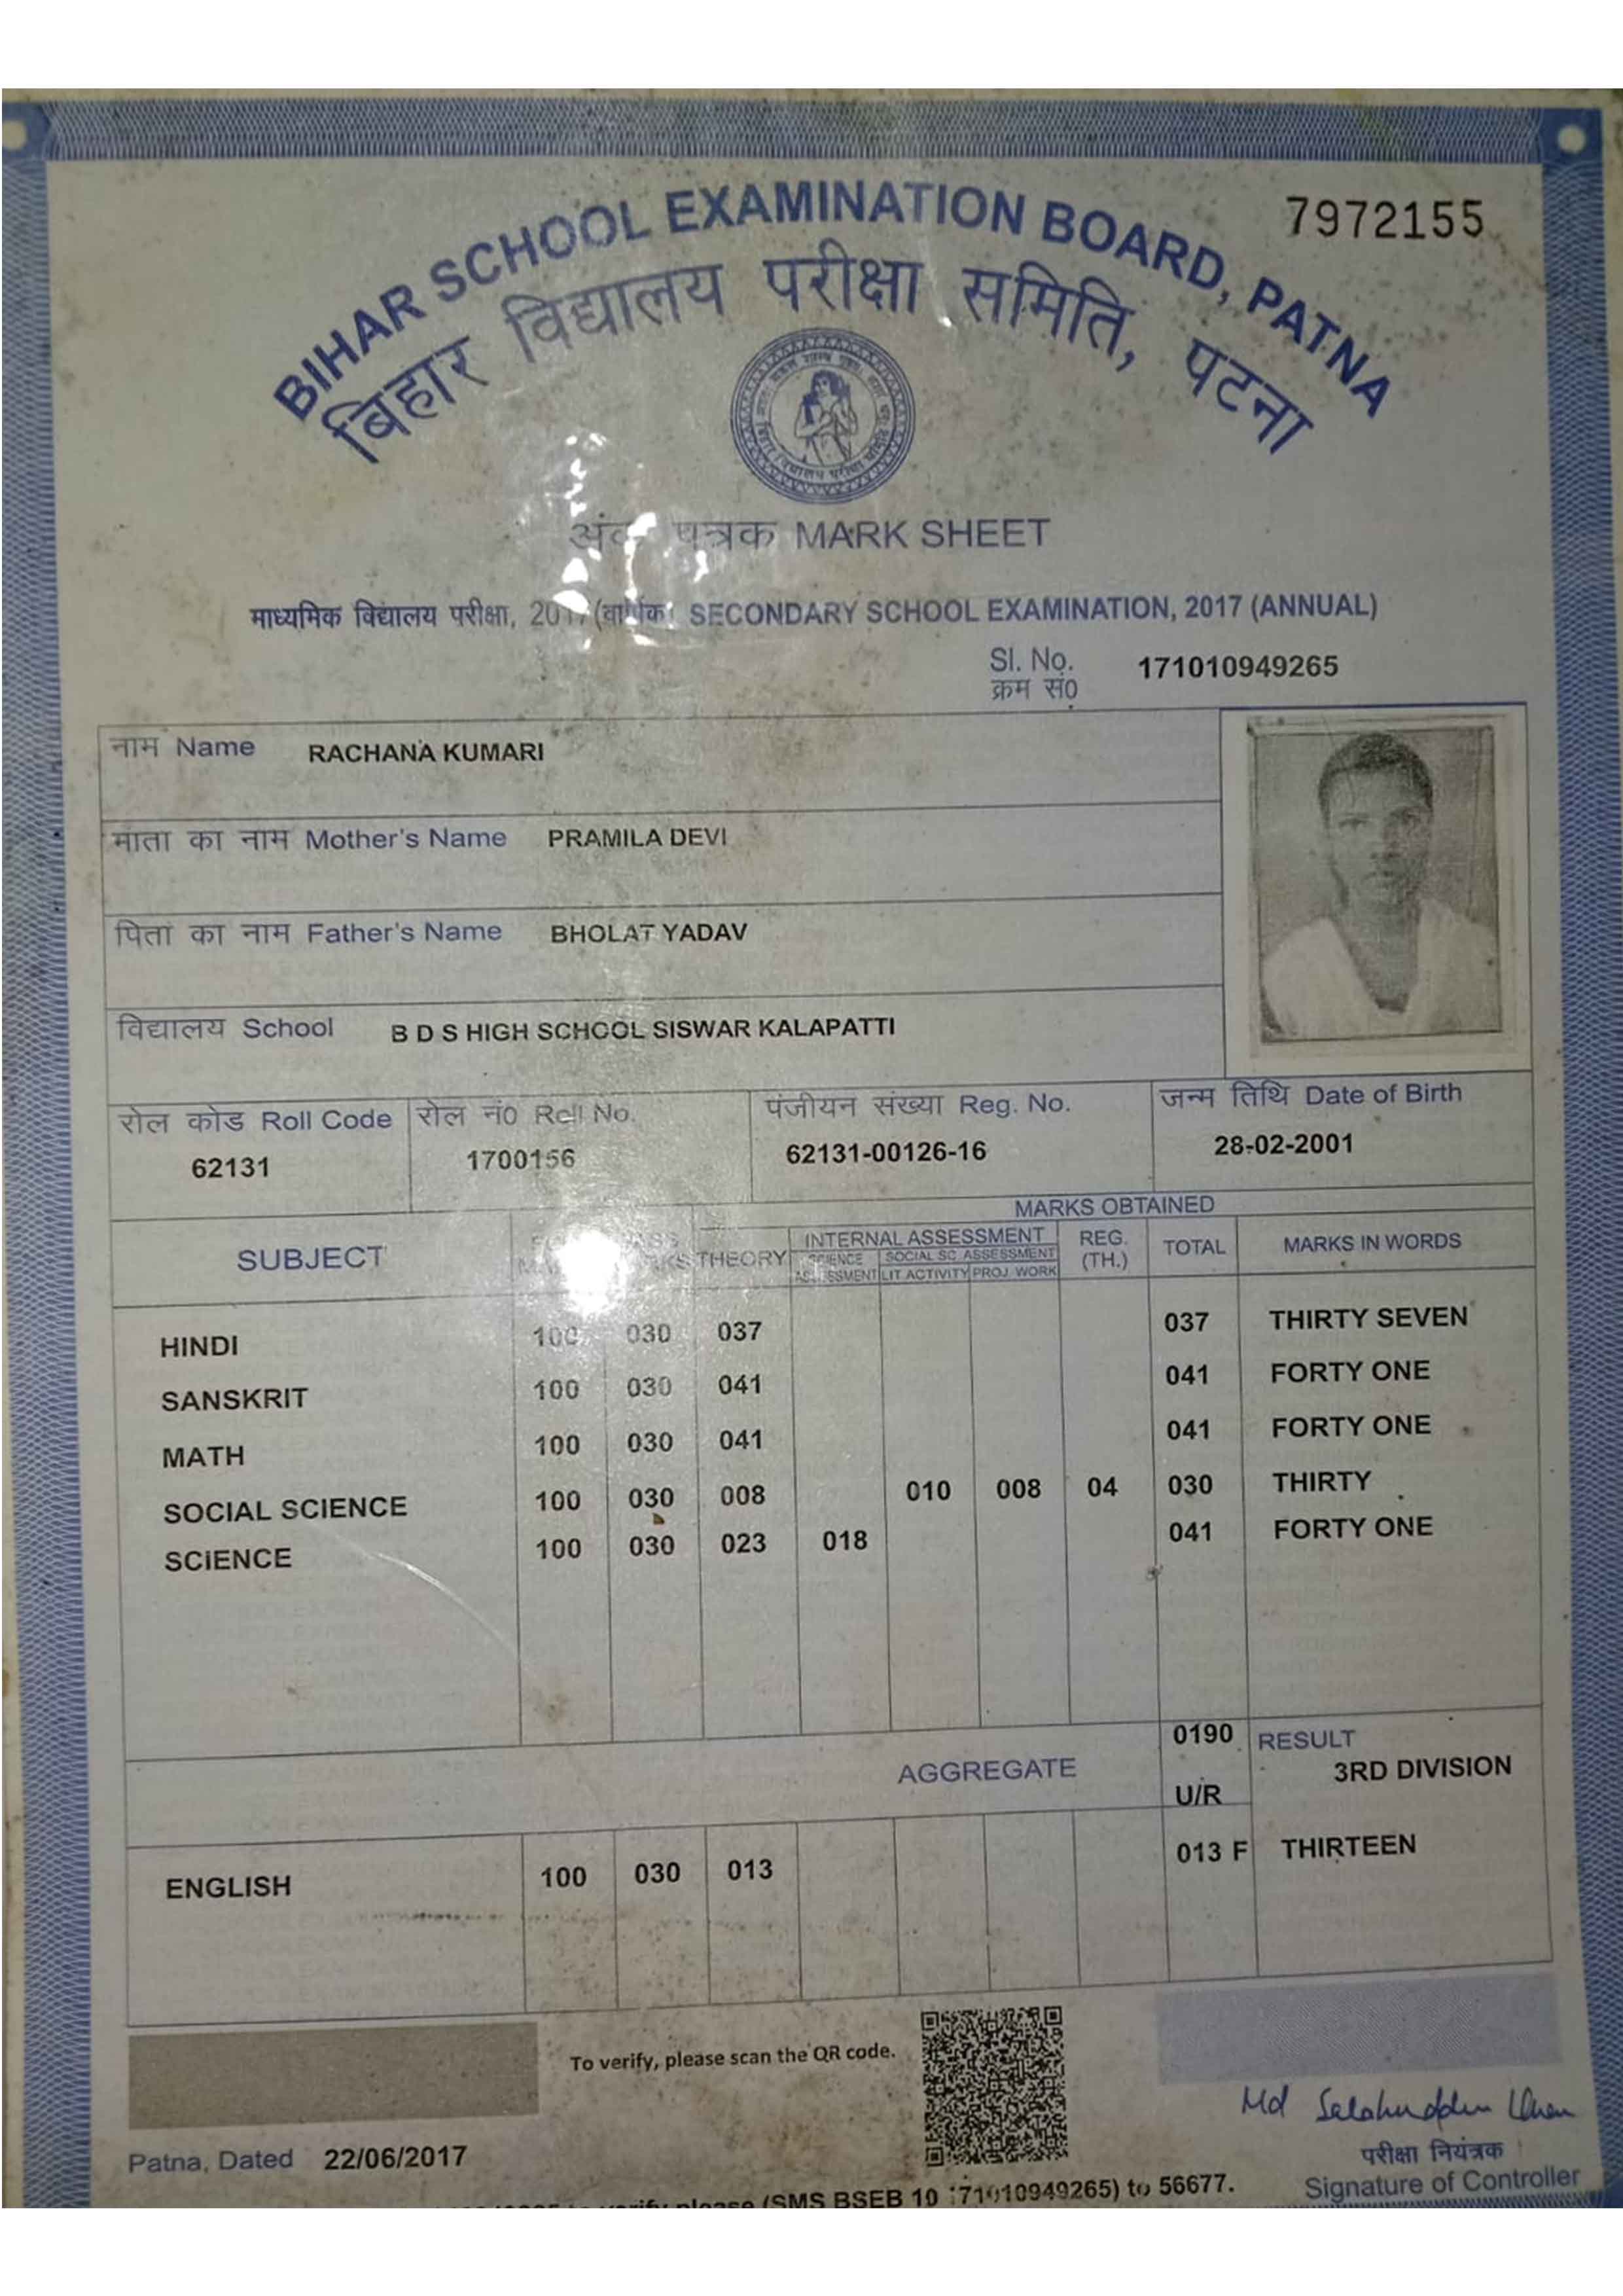 7972155
BIHAR SCHOOL EXAMINATION BOARD, PATNA
बिहार विद्यालय परीक्षा समिति, पटना
अंक पत्रक MARK SHEET
माध्यमिक विद्यालय परीक्षा, 2017 (वार्षिक) SECONDARY SCHOOL EXAMINATION, 2017 (ANNUAL)
Sl. No. 171010949265
क्रम सं0
नाम Name RACHANA KUMARI
माता का नाम Mother's Name PRAMILA DEVI
पिता का नाम Father's Name BHOLAT YADAV
विद्यालय School B D S HIGH SCHOOL SISWAR KALAPATTI
रोल कोड Roll Code रोल नं0 Roll No. पंजीयन संख्या Reg. No. जन्म तिथि Date of Birth
62131 1700156 62131-00126-16 28-02-2001
MARKS OBTAINED
SUBJECT THEORY INTERNAL ASSESSMENT REG. (TH.) TOTAL MARKS IN WORDS
SCIENCE ASSESSMENT SOCIAL SC. ASSESSMENT
LIT.ACTIVITY PROJ. WORK
HINDI 100 030 037 037 THIRTY SEVEN
SANSKRIT 100 030 041 041 FORTY ONE
MATH 100 030 041 041 FORTY ONE
SOCIAL SCIENCE 100 030 008 010 008 04 030 THIRTY
SCIENCE 100 030 023 018 041 FORTY ONE
AGGREGATE 0190 RESULT
U/R 3RD DIVISION
ENGLISH 100 030 013 013 F THIRTEEN
To verify, please scan the QR code.
Md Salahuddin Khan
परीक्षा नियंत्रक
Patna, Dated 22/06/2017
Signature of Controller
verify please (SMS BSEB 10 171010949265) to 56677.